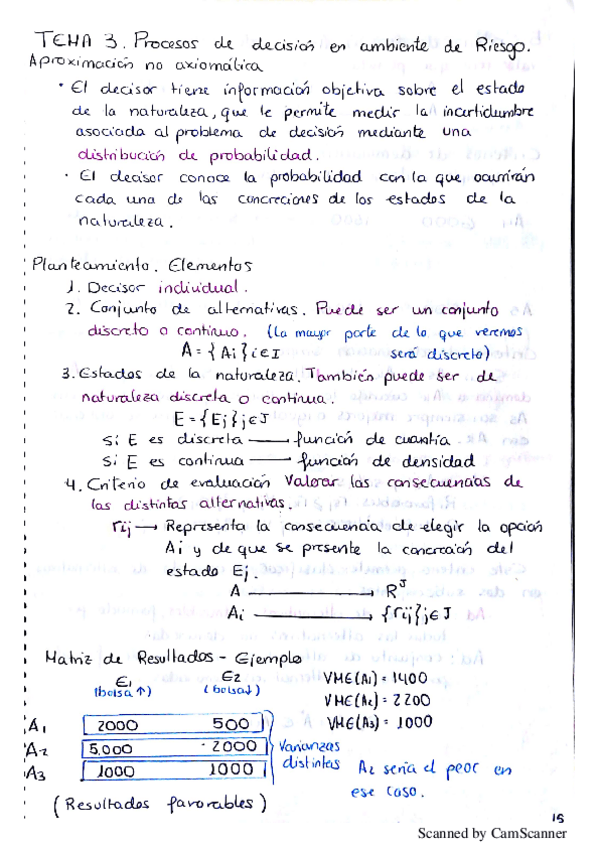 TEMA 3. Procesos de decisión en ambiente de Riesgo.
Aproximación no axiomática
· El decisor tiene información objetiva sobre el estado
de la naturaleza, que le permite medir la incertidumbre
asociada al problema de decisión mediante una
distribución de probabilidad.
· El decisor conoce la probabilidad con la que ocurrirán
cada una de las concreciones de los estados de la
naturaleza.
Planteamiento. Elementos
1. Decisor individual.
2. Conjunto de alternativas. Puede ser un conjunto
discreto o continuo. (La mayor parte de lo que veremos
A = {Ai} i∈I será discreto)
3. Estados de la naturaleza. También puede ser de
naturaleza discreta o continua.
E = {Ej} j∈J
Si E es discreta —— función de cuantía
Si E es continua —— función de densidad
4. Criterio de evaluación Valorar las consecuencias de
las distintas alternativas.
rij → Representa la consecuencia de elegir la opción
Ai y de que se presente la concreción del
estado Ej.
A → R^J
Ai → {rij} j∈J
Matriz de Resultados - Ejemplo
E1 E2 VME(A1) = 1400
(bolsa ↑) (bolsa ↓) VME(A2) = 2200
A1 2000 500 VME(A3) = 1000
A2 5.000 -2000 Varianzas
A3 1000 1000 distintas A2 sería el peor en
ese caso.
(Resultados favorables)
15
Scanned by CamScanner